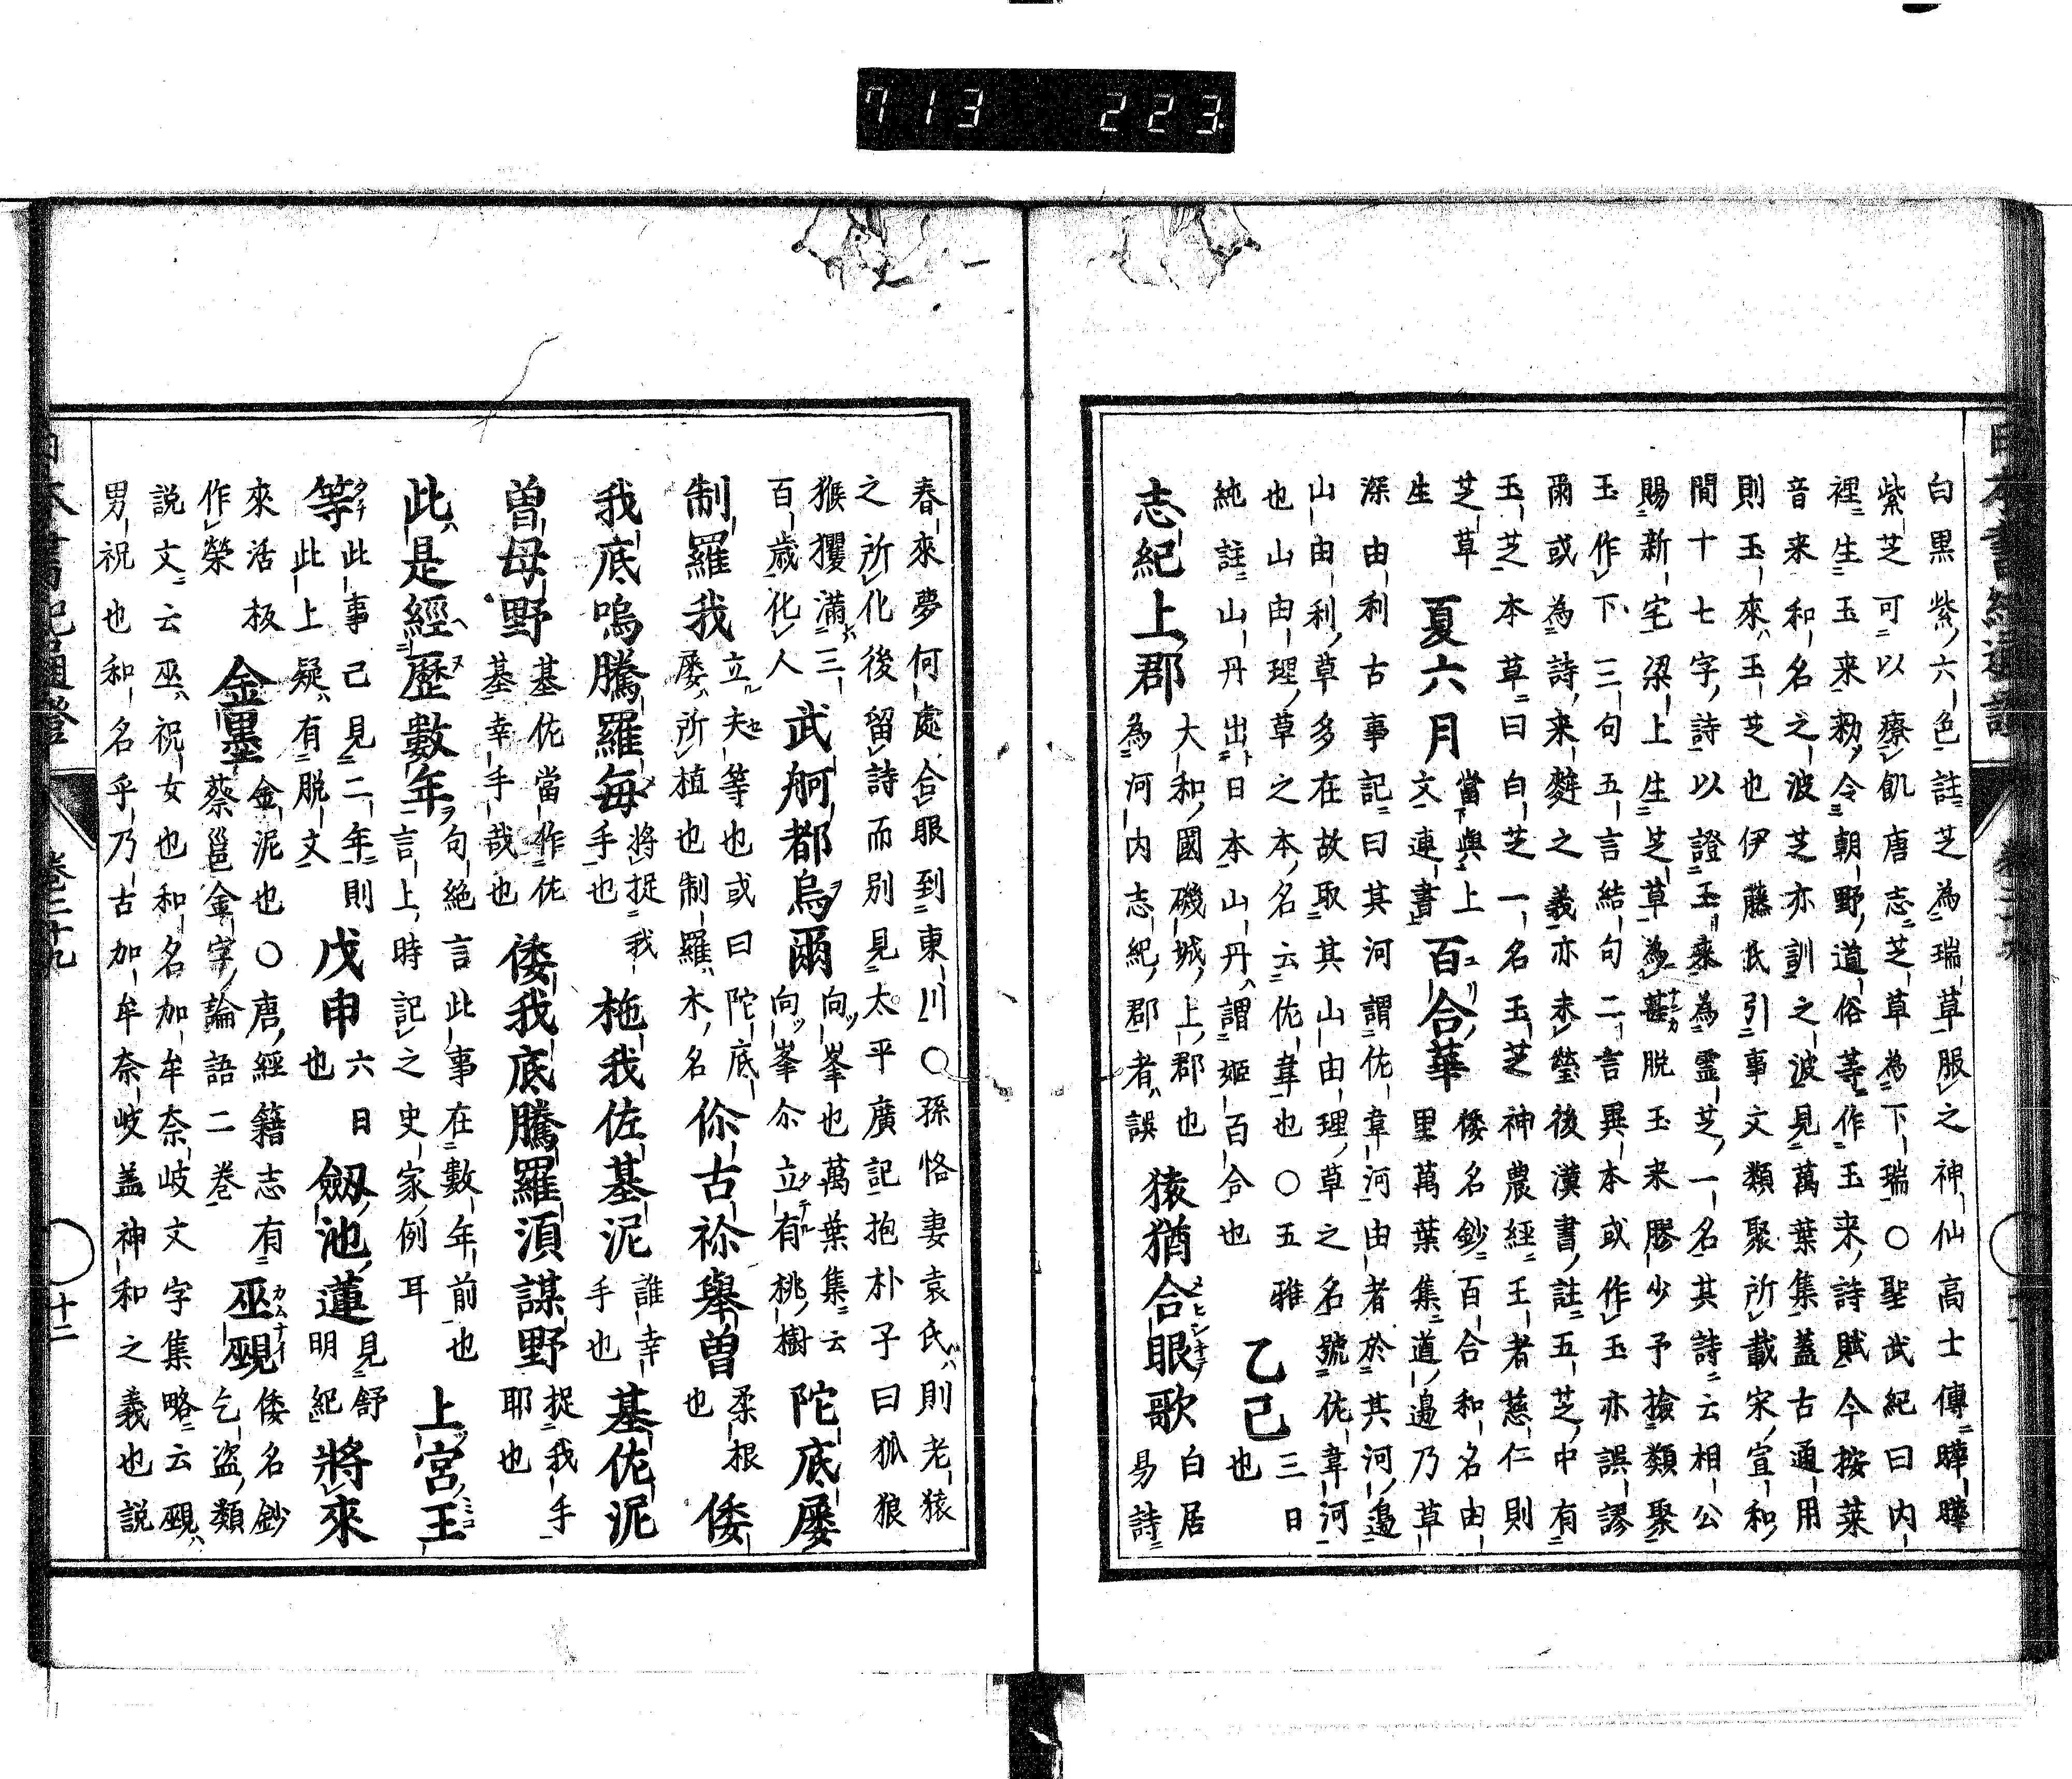 713 223
白黒紫六色註芝為瑞草服之神仙高士傳曄曄
紫芝可以療飢唐志芝草為下瑞○聖武紀曰内
裡生玉来勑令朝野道俗等作玉来詩賦今按萊
音来和名之波芝亦訓之波見萬葉集蓋古通用
則玉來玉芝也伊藤氏引事文類聚所載宋宣和
間十七字詩以證玉來為霊芝一名其詩云相公
賜新宅梁上生芝草為甚脱玉来膠少予撿類聚
玉作下三句五言結句二言異本或作玉亦誤謬
爾或為詩来辤之義亦未瑩後漢書註五芝中有
玉芝本草曰白芝一名玉芝神農經王者慈仁則
芝草
生
夏六月
當與上
文連書
百合華
倭名鈔百合和名由
里萬葉集道邊乃草
深由利古事記曰其河謂佐韋河由者於其河邊
山由利草多在故取其山由理草之名號佐韋河
也山由理草之本名云佐韋也○五雅
純註山丹出日本山丹謂姬百合也
乙己
三日
也
志紀上郡
大和國磯城上郡也
為河内志紀郡者誤
猿猶合眼歌
白居
易詩
春來夢何處合眼到東川○孫恪妻袁氏則老猿
之所化後留詩而別見太平廣記抱朴子曰狐狼
猴玃滿三
百歳化人
武舸都烏爾
向峯也萬葉集云
向峯尒立有桃樹
陀底屡
制羅我
立夫等也或曰陀底
屡所植也制羅木名
伱古禰舉曽
柔根
也
倭
我底嗚騰羅毎
將捉我
手也
柂我佐基泥
誰幸
手也
基佐泥
曽母野
基佐當作佐
基幸手哉也
倭我底騰羅湏謀野
捉我手
耶也
此是經歷數年
句絶言此事在數年前也
言上時記之史家例耳
上宮王
等
此事已見二年則
此上疑有脱文
戊申
六日
也
劔池蓮
見舒
明紀
將來
來活板
作榮
金墨
金泥也○唐經籍志有
蔡邕金字論語二巻
巫覡
倭名鈔
乞盗類
説文云巫祝女也和名加牟奈岐文字集略云覡
男祝也和名乎乃古加牟奈岐盖神和之義也説
十二